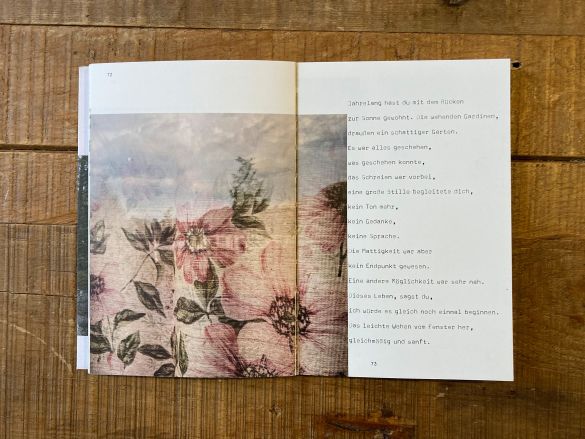 72
Jahrelang hast du mit dem Rücken
zur Sonne gewohnt. Die wehenden Gardinen,
draußen ein schattiger Garten.
Es war alles geschehen,
was geschehen konnte,
das Schreien war vorbei,
eine große Stille begleitete dich,
kein Ton mehr,
kein Gedanke,
keine Sprache.
Die Mattigkeit war aber
kein Endpunkt gewesen.
Eine andere Möglichkeit war sehr nah.
Dieses Leben, sagst du,
ich würde es gleich noch einmal beginnen.
Das leichte Wehen vom Fenster her,
gleichmäßig und sanft.
73